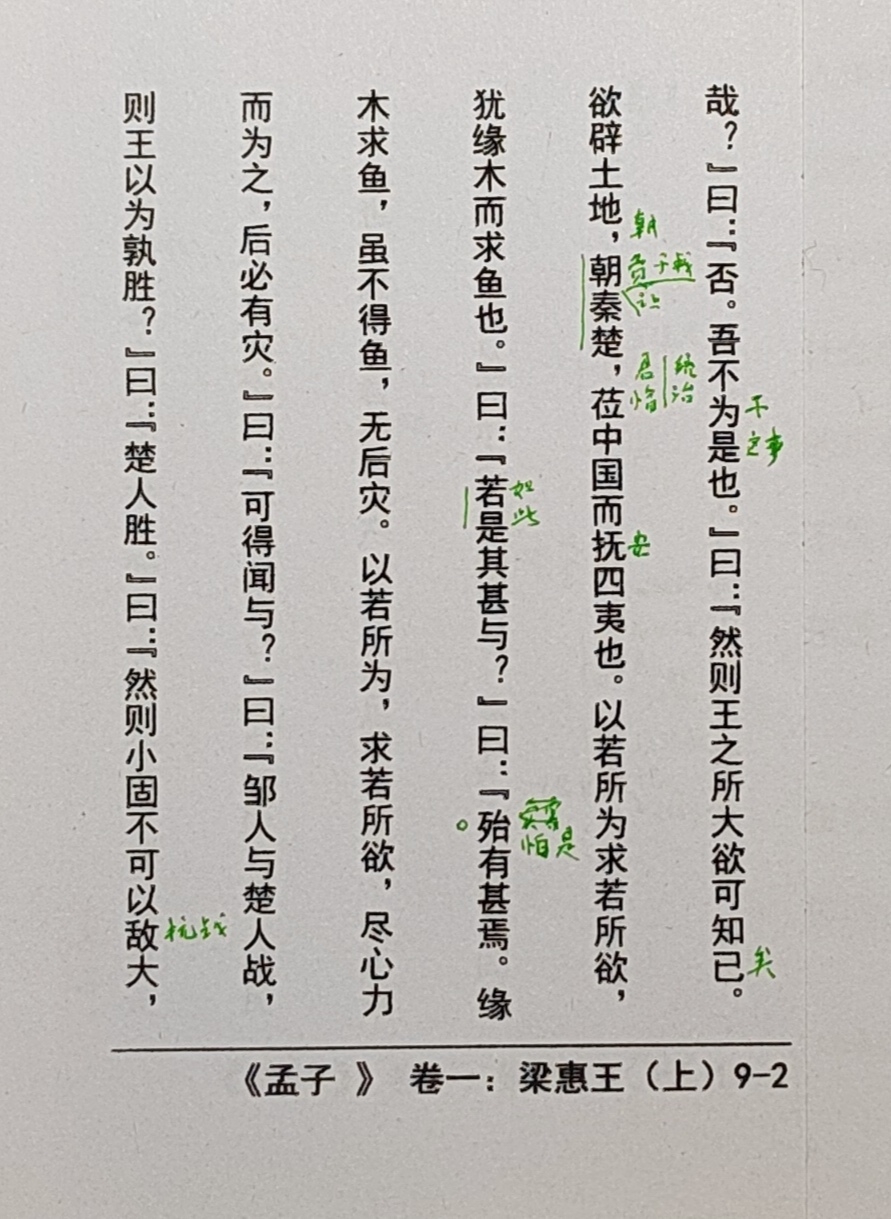 哉？』曰：『否。吾不为是也。』曰：『然则王之所大欲可知已。
不
之事
矣
欲辟土地，朝秦楚，莅中国而抚四夷也。以若所为求若所欲，
朝
于我
让
统治
君临
安
犹缘木而求鱼也。』曰：『若是其甚与？』曰：『殆有甚焉。缘
如此
怕是
木求鱼，虽不得鱼，无后灾。以若所为，求若所欲，尽心力
而为之，后必有灾。』曰：『可得闻与？』曰：『邹人与楚人战，
则王以为孰胜？』曰：『楚人胜。』曰：『然则小固不可以敌大，
《孟子 》 卷一：梁惠王（上）9-2